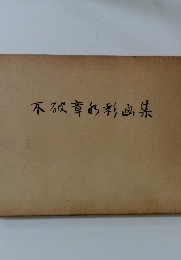 不破章水彩画集